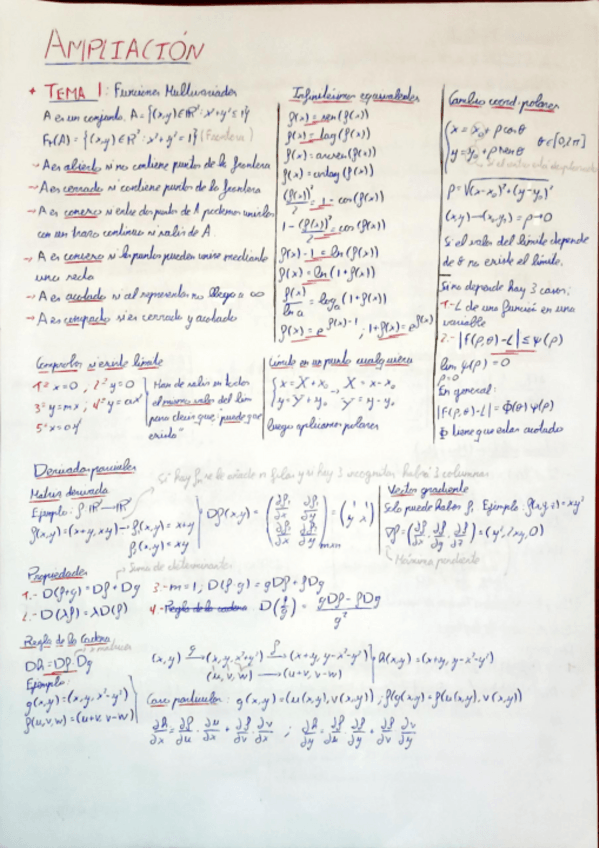 AMPLIACIÓN
+ TEMA 1: Funciones Multivariadas
A es un conjunto. A = {(x,y)∈ℝ²: x²+y² ≤ 1}
Fr(A) = {(x,y)∈ℝ²: x²+y² = 1} (Frontera)
→ A es abierto si no contiene puntos de la frontera
→ A es cerrado si contiene puntos de la frontera
→ A es conexo si entre dos puntos de A podemos unirlos
con un trazo continuo sin salir de A.
→ A es convexo si los puntos pueden unirse mediante
una recta
→ A es acotado si al representar no llego a ∞
→ A es compacto si es cerrado y acotado
Infinitésimos equivalentes
f(x) = sen(f(x))
f(x) = tag(f(x))
f(x) = arcsen(f(x))
f(x) = arctag(f(x))
(f(x))²/2 = 1 - cos(f(x))
1 - (f(x))²/2 = cos(f(x))
f(x) - 1 = ln(f(x))
f(x) = ln(1+f(x))
f(x)/ln a = log_a(1+f(x))
f(x) = e^f(x) - 1 ; 1+f(x) = e^f(x)
Cambio coord. polares
{x = x₀ + ρ cos θ
y = y₀ + ρ sen θ θ∈[0,2π]
ρ = √(x-x₀)²+(y-y₀)²
(x,y)→(x₀,y₀) = ρ→0
Si el valor del límite depende
de θ no existe el límite.
Si no depende hay 3 casos:
1.- L de una función en una
variable
2.- |F(ρ,θ)-L| ≤ ψ(ρ)
lim ψ(ρ) = 0
ρ→0
En general:
|F(ρ,θ)-L| = Φ(θ) ψ(ρ)
Φ tiene que estar acotado
Comprobar si existe límite
1º x = 0 , 2º y = 0
3º y = mx ; 4º y = ax²
5º x = ay²
Han de salir en todos
el mismo valor del lim
para decir que "puede que
exista"
Límite en un punto cualquiera
{x = X + x₀ → X = x - x₀
y = Y + y₀ Y = y - y₀
luego aplicamos polares
Derivadas parciales
Si hay f₁ se le añade filas y si hay 3 incógnitas habrá 3 columnas
Matriz derivada
Ejemplo: f: ℝ² → ℝ²
f(x,y) = (x+y, xy) → f₁(x,y) = x+y
f₂(x,y) = xy
Df(x,y) = (∂f₁/∂x ∂f₁/∂y ; ∂f₂/∂x ∂f₂/∂y)mxn = (1 1 ; y x)
Vector gradiente
Solo puede haber f₁. Ejemplo: f(x,y,z) = xy²
∇f = (∂f/∂x, ∂f/∂y, ∂f/∂z) = (y², 2xy, 0)
↳ Máxima pendiente
Propiedades
Suma de determinantes
1.- D(f+g) = Df + Dg
2.- D(λf) = λD(f)
3.- m = 1; D(f·g) = gDf + fDg
4.- Regla de la cadena D(f/g) = gDf - fDg / g²
Regla de la Cadena
Dh = Df·Dg
Ejemplo:
g(x,y) = (x, y, x²+y²)
f(u,v,w) = (u+v, v-w)
(x,y) →g (x, y, x²+y²) →f (x+y, y-x²-y²)
(u, v, w) → (u+v, v-w)
h(x,y) = (x+y, y-x²-y²)
Caso particular: g(x,y) = (u(x,y), v(x,y)) ; f(g(x,y)) = f(u(x,y), v(x,y))
∂h/∂x = ∂f/∂u · ∂u/∂x + ∂f/∂v · ∂v/∂x ; ∂h/∂y = ∂f/∂u · ∂u/∂y + ∂f/∂v · ∂v/∂y